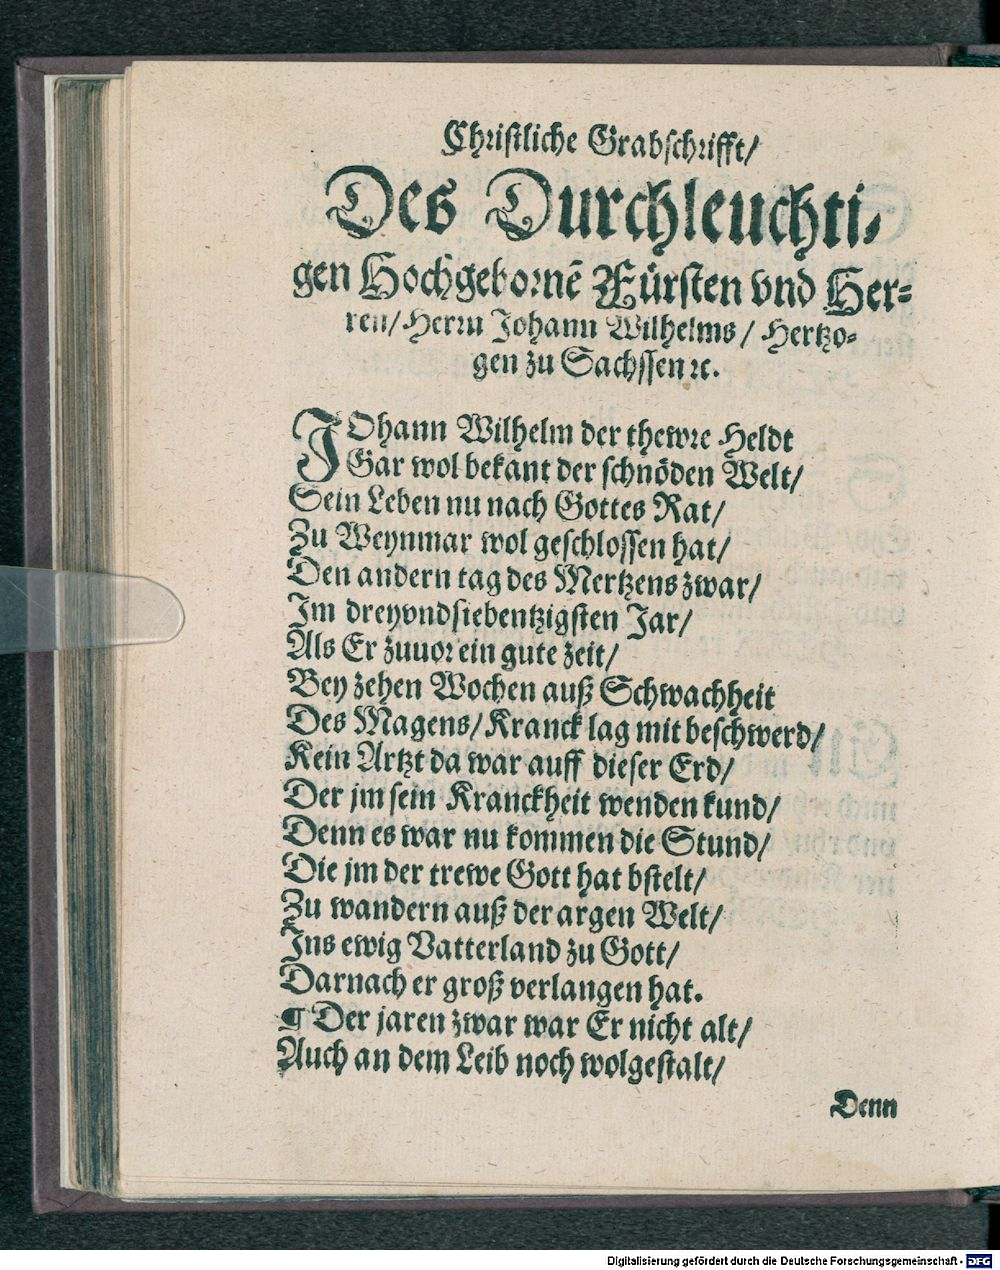 Christliche Grabschrifft/
Des Durchleuchti-
gen Hochgebornē Fürsten vnd Her-
ren/ Herrn Johann Wilhelms/ Hertzo-
gen zu Sachssen ꝛc.
JOhann Wilhelm der thewre Heldt
Gar wol bekant der schnöden Welt/
Sein Leben nu nach Gottes Rat/
Zu Weynmar wol geschlossen hat/
Den andern tag des Mertzens zwar/
Im dreyvndsiebentzigsten Jar/
Als Er zuuor ein gute zeit/
Bey zehen Wochen auß Schwachheit
Des Magens/ Kranck lag mit beschwerd/
Kein Artzt da war auff dieser Erd/
Der jm sein Kranckheit wenden kund/
Denn es war nu kommen die Stund/
Die jm der trewe Gott hat bstelt/
Zu wandern auß der argen Welt/
Ins ewig Vatterland zu Gott/
Darnach er groß verlangen hat.
¶ Der jaren zwar war Er nicht alt/
Auch an dem Leib noch wolgestalt/
Denn
Digitalisierung gefördert durch die Deutsche Forschungsgemeinschaft - DFG